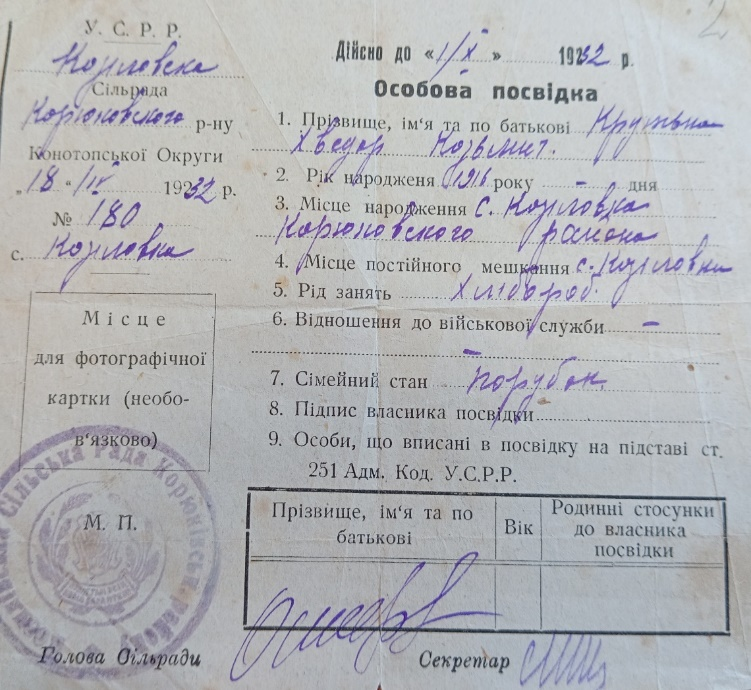 У. С. Р. Р.
Козловска
Сільрада
Корюковского р-ну
Конотопської Округи
„18 “ IV 1932 р.
№ 180
с. Козловка
Місце
для фотографічної
картки (необо-
в'язково)
М. П.
Сільська Рада Корюківськ. району
Голова Сільради
Дійсно до « 1/X » 1932 р.
Особова посвідка
1. Прізвище, ім'я та по батькові
Хведор Козьмич.
2. Рік народженя 1916 року дня
3. Місце народження с. Козловка
Корюковского района
4. Місце постійного мешкання с. Козловка
5. Рід занять Хлібороб
6. Відношення до військової служби –
–
7. Сімейний стан порубок
8. Підпис власника посвідки
9. Особи, що вписані в посвідку на підставі ст.
251 Адм. Код. У.С.Р.Р.
Прізвище, ім'я та по
батькові
Вік
Родинні стосунки
до власника
посвідки
Секретар